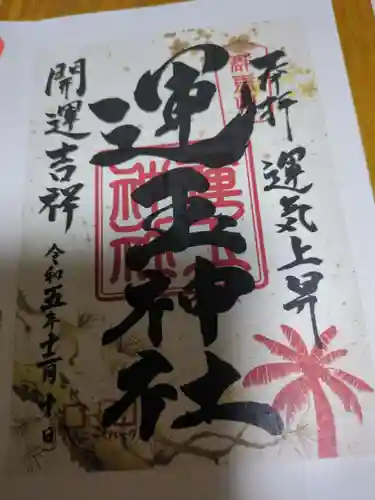 奉拝
運気上昇
運玉神社
開運吉祥
令和五年十二月十日